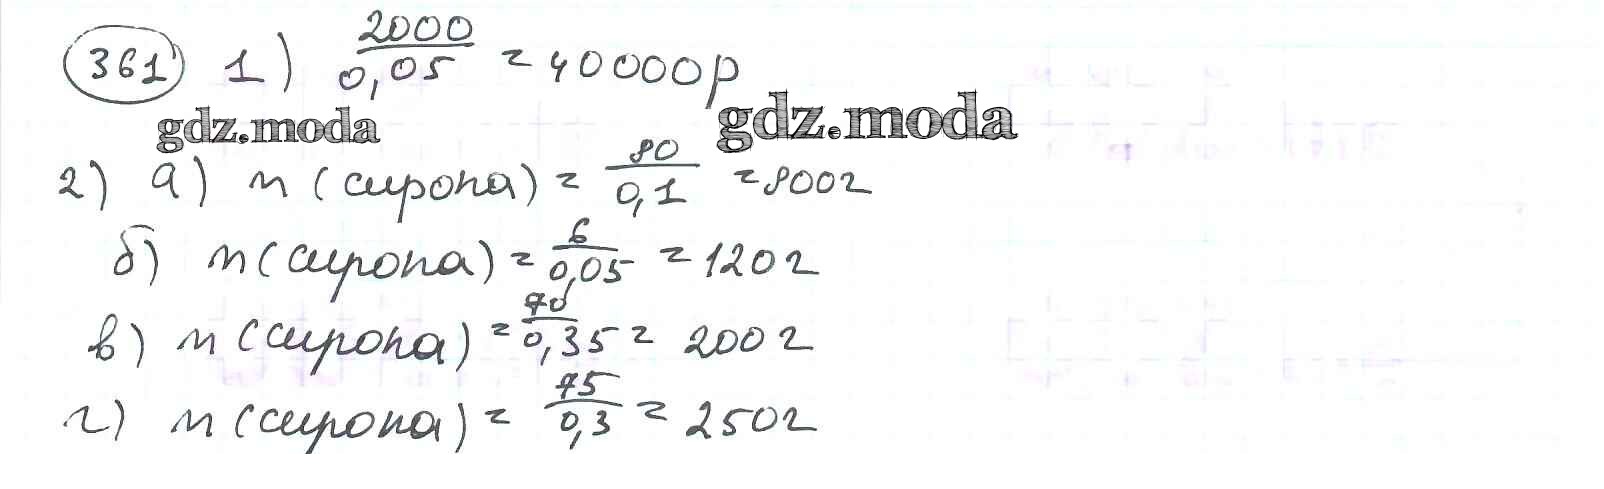 361 1) 2000/0,05 = 40000р
gdz.moda gdz.moda
2) а) m (сиропа) = 80/0,1 = 800г
б) m (сиропа) = 6/0,05 = 120г
в) m (сиропа) = 70/0,35 = 200г
г) m (сиропа) = 75/0,3 = 250г